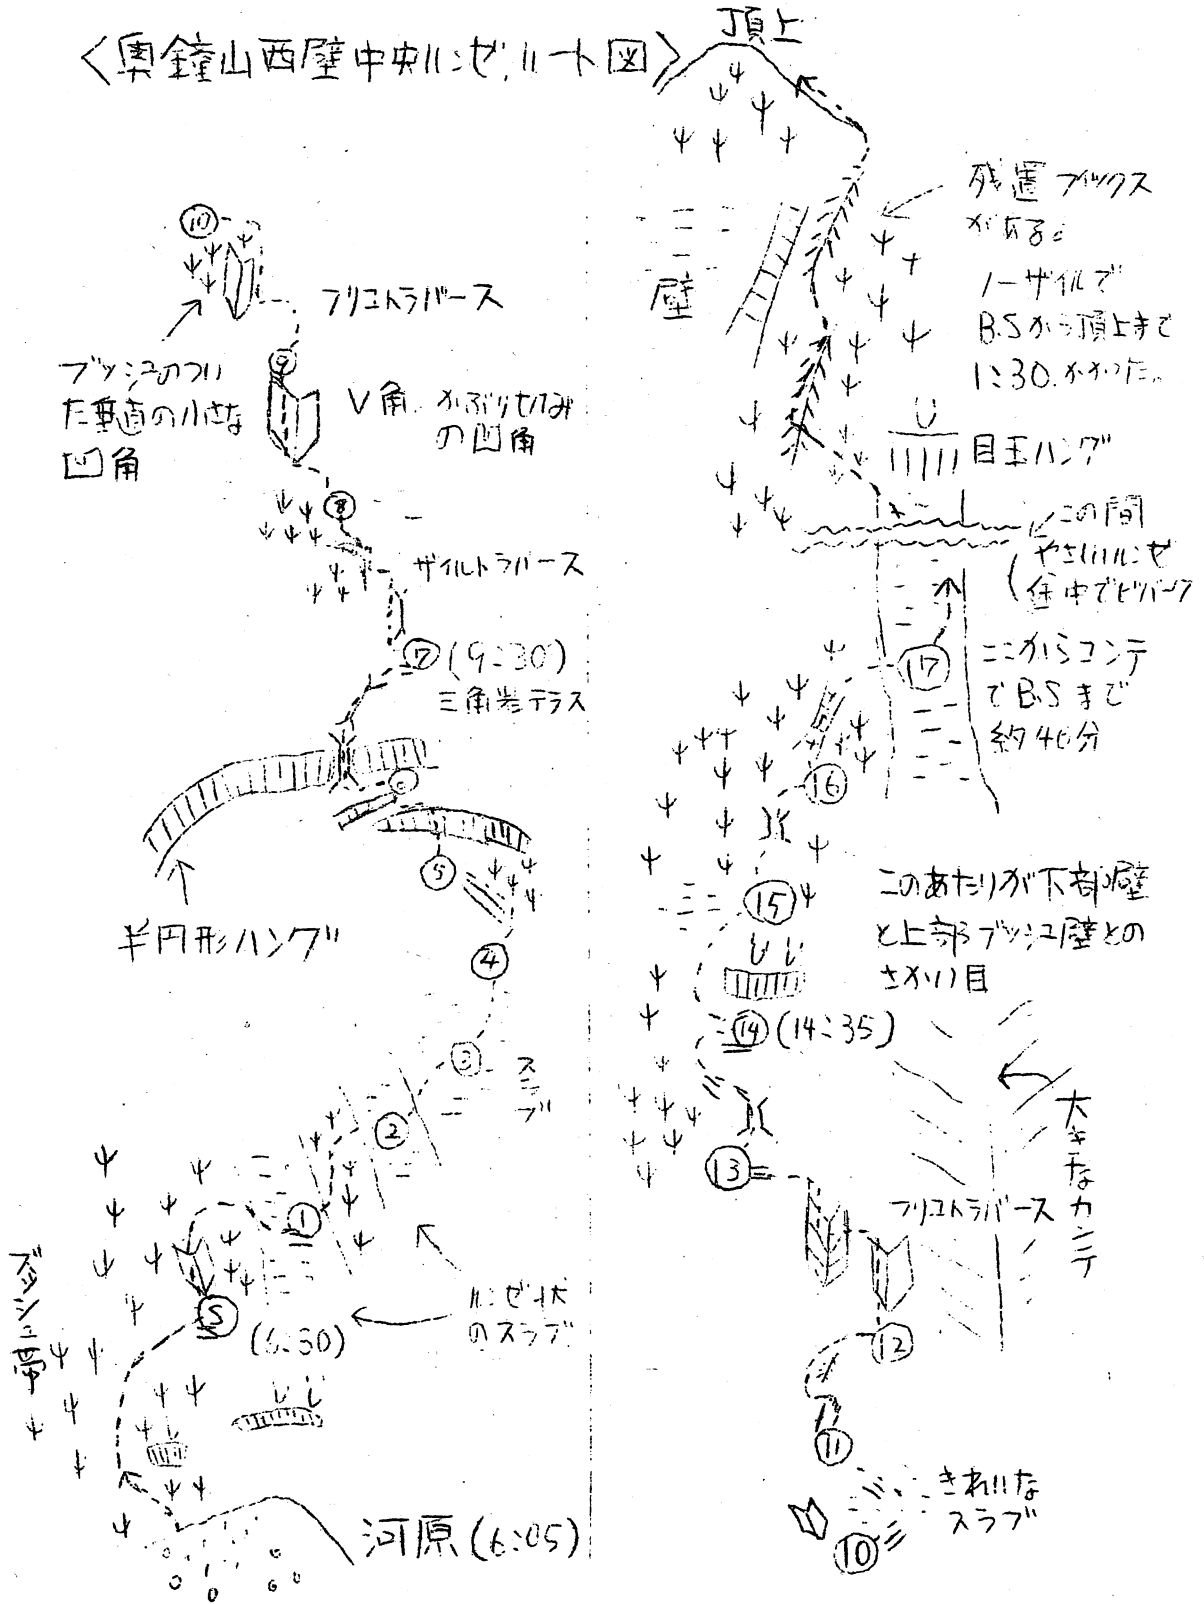 <奥鐘山西壁中央ルンゼ.ルート図>
⑩
フリコトラバース
ブッシュのつい
た垂直の小さな
凹角
⑨
V角 かぶりぎみ
の凹角
⑧
ザイルトラバース
⑦ (9:30)
三角岩テラス
⑤
半円形ハング
④
③
スラブ
②
①
ルンゼ状
のスラブ
Ⓢ
(6:30)
ブッシュ帯
河原(6:05)
頂上
残置フィックス
がある。
ノーザイルで
B.Sから頂上まで
1:30.かかった。
壁
目玉ハング
この間
やさしいルンゼ
途中でビバーク
⑰
ここからコンテ
でB.Sまで
約40分
⑯
⑮
このあたりが下部壁
と上部ブッシュ壁との
さかい目
⑭(14:35)
大きなカンテ
⑬
フリコトラバース
⑫
⑪
きれいな
スラブ
⑩